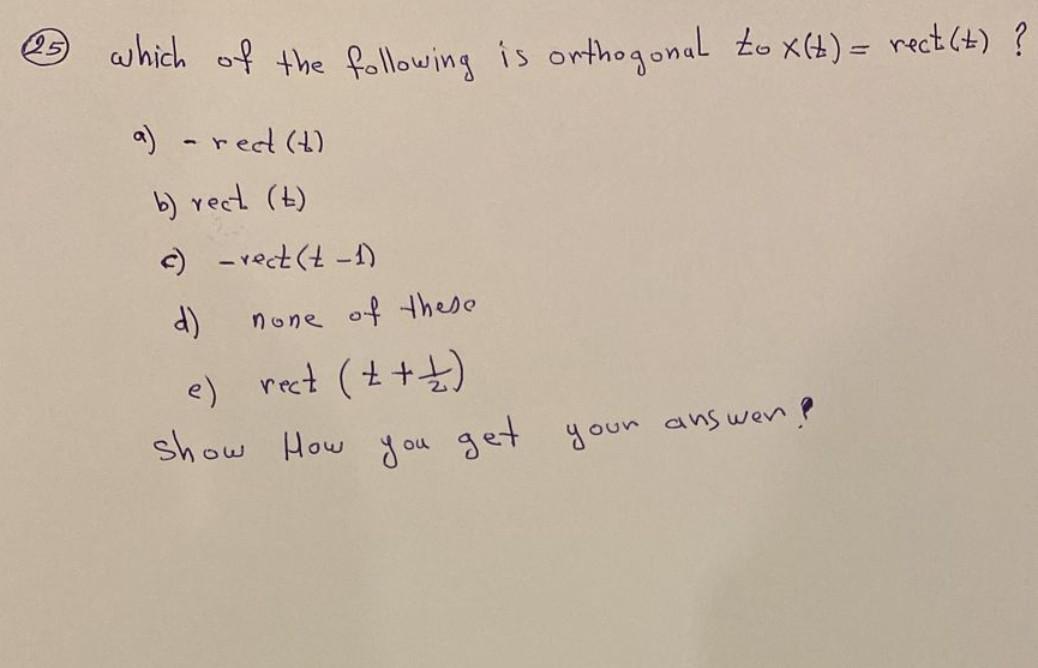 25 which of the following is orthogonal to x(t) = rect(t) ?
a) - rect (t)
b) rect (t)
c) - rect(t - 1)
d) none of these
e) rect (t + 1/2)
show How you get your answer?